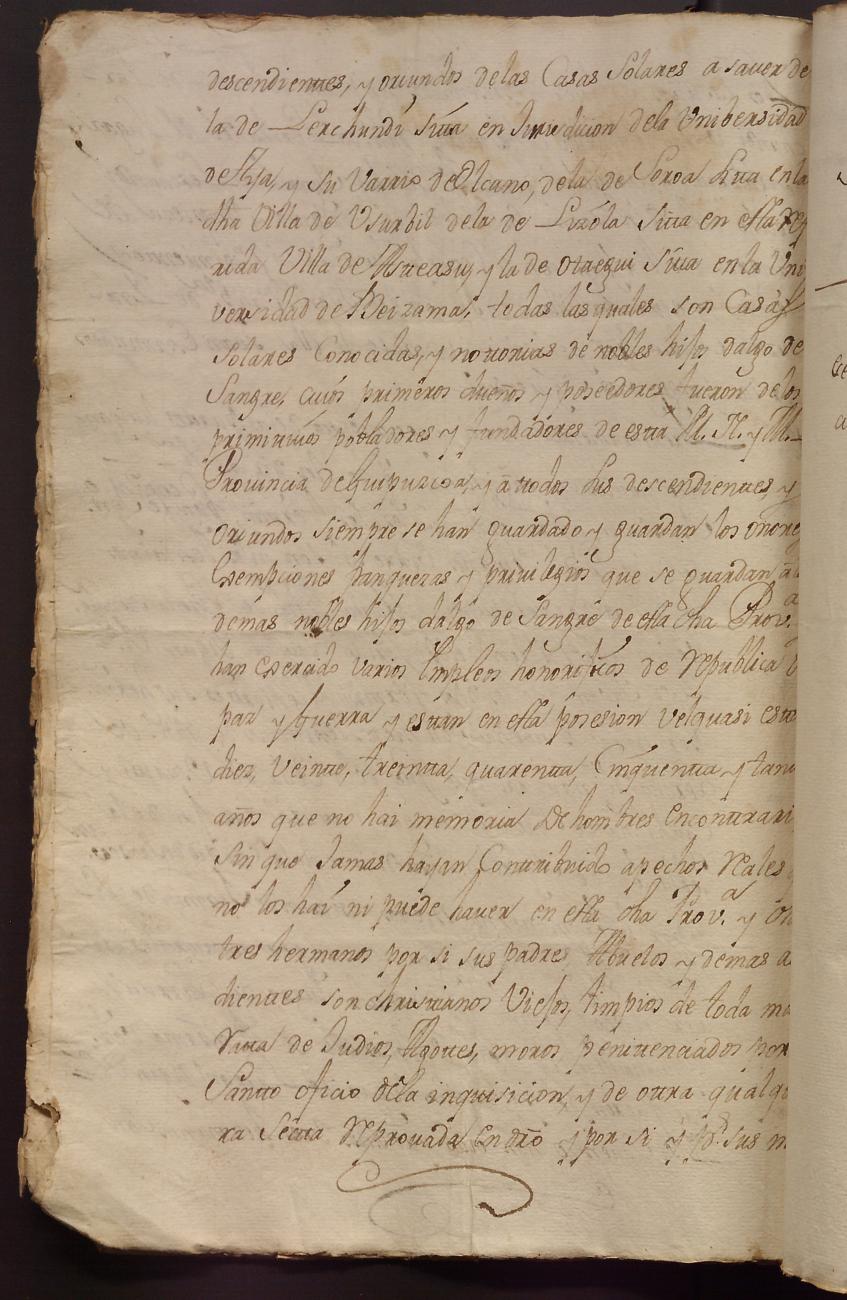 descendientes, y oriundos de las Casas Solares a saver de
la de Lerchundi sitta en Jurisdicion dela Unibersidad
de Aya, y su Varrio de Olcano, dela de Soroa sitta en la
dha Villa de Usurbil dela de Lizola sitta en essa refe
rida Villa de Asteasu, y la de Otaegui sitta en la Uni
versidad de Beizama, todas las quales son Casas
Solares Conocidas, y nottorias de nobles hijos dalgo de
Sangre, cuios primeros dueños y poseedores fueron de los
primitivos pobladores y fundadores de esta M. N. y M.
Provincia de Guipuzcoa, y a ttodos sus descendientes, y
oriundos siempre se han guardado y guardan los onores
Esempciones franquezas y privilegios que se guardan a
demas nobles hijos dalgo de Sangre de essa dha Prov.ª
han exercido varios Empleos honorificos de Republica
paz y Guerra y estan en essa posesion velquasi
diez, veintte, treintta, quarentta, Cinquentta y
años que no hai memoria de hombres encontrari
sin que Jamas hayan Contribuido a pechos Reales
no los hai ni puede haver en essa dha Prov.ª y
tres hermanos por si sus padres Abuelos y demas
dientes son christianos Viejos, limpios de toda
de Judios, Agotes, moros penitenciados por
Santto oficio de la inquisicion, y de otra
ra Sectta Reprovada en dro y por si y pr. sus